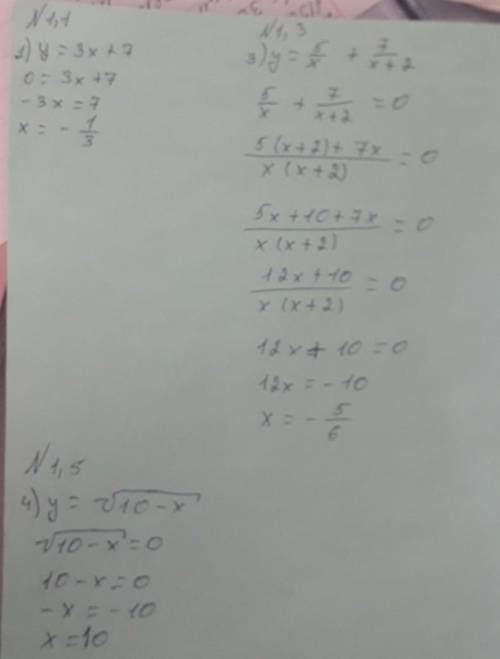 N1,1
1) y = 3x + 7
0 = 3x + 7
-3x = 7
x = - 1/3
N1,3
3) y = 5/x + 7/(x+2)
5/x + 7/(x+2) = 0
(5(x+2) + 7x)/(x(x+2)) = 0
(5x+10+7x)/(x(x+2)) = 0
(12x+10)/(x(x+2)) = 0
12x + 10 = 0
12x = -10
x = - 5/6
N1,5
4) y = √(10-x)
√(10-x) = 0
10 - x = 0
-x = -10
x = 10